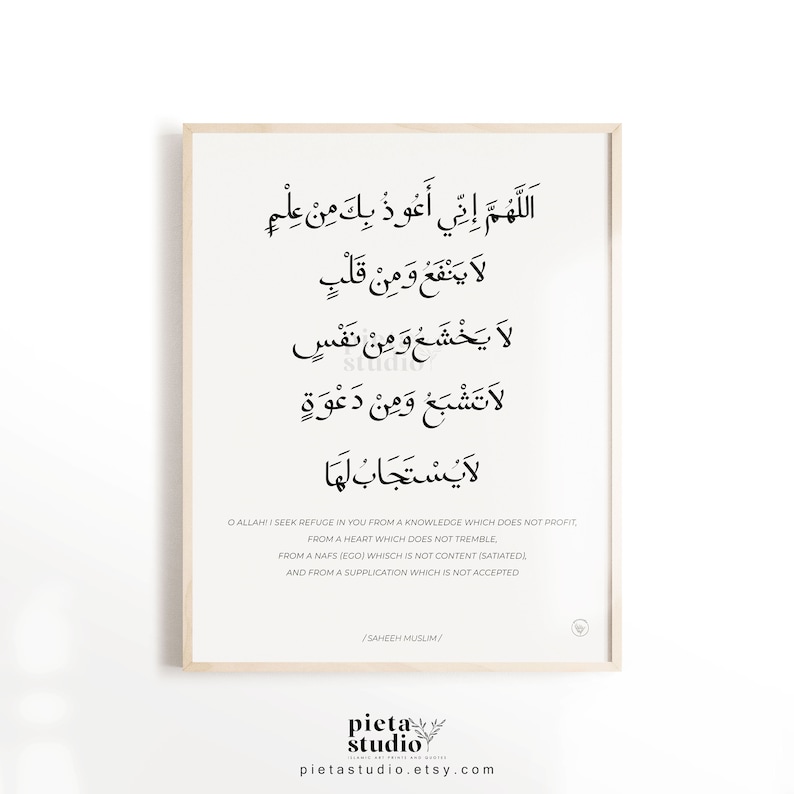 اَللَّهُمَّ إِنِّي أَعُوذُ بِكَ مِنْ عِلْمٍ
لَا يَنْفَعُ وَمِنْ قَلْبٍ
لَا يَخْشَعُ وَمِنْ نَفْسٍ
لَا تَشْبَعُ وَمِنْ دَعْوَةٍ
لَا يُسْتَجَابُ لَهَا
pieta
studio
O ALLAH! I SEEK REFUGE IN YOU FROM A KNOWLEDGE WHICH DOES NOT PROFIT,
FROM A HEART WHICH DOES NOT TREMBLE,
FROM A NAFS (EGO) WHISCH IS NOT CONTENT (SATIATED),
AND FROM A SUPPLICATION WHICH IS NOT ACCEPTED
/ SAHEEH MUSLIM /
pieta
studio
ISLAMIC ART PRINTS AND QUOTES
pietastudio.etsy.com